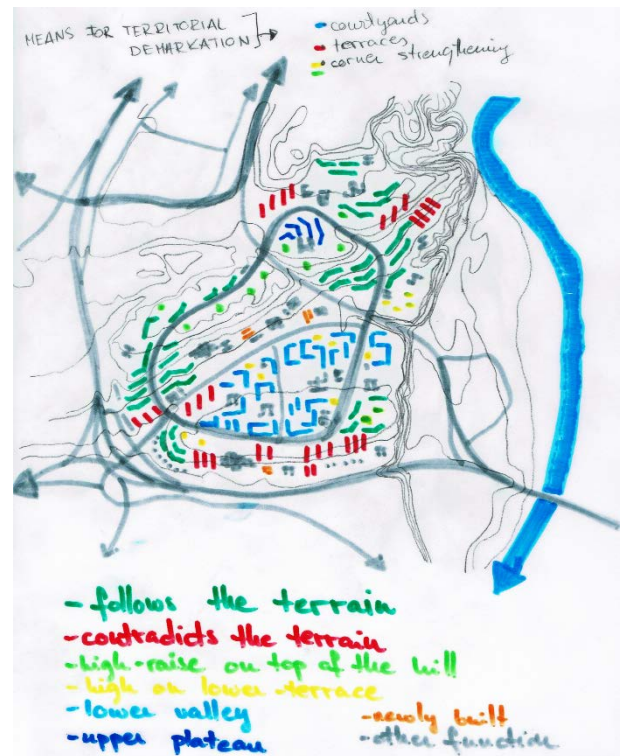 MEANS FOR TERRITORIAL
DEMARKATION
- courtyards
- terraces
- corner strengthening
- follows the terrain
- contradicts the terrain
- high-raise on top of the hill
- high on lower-terrace
- lower valley
- upper plateau
- newly built
- other function